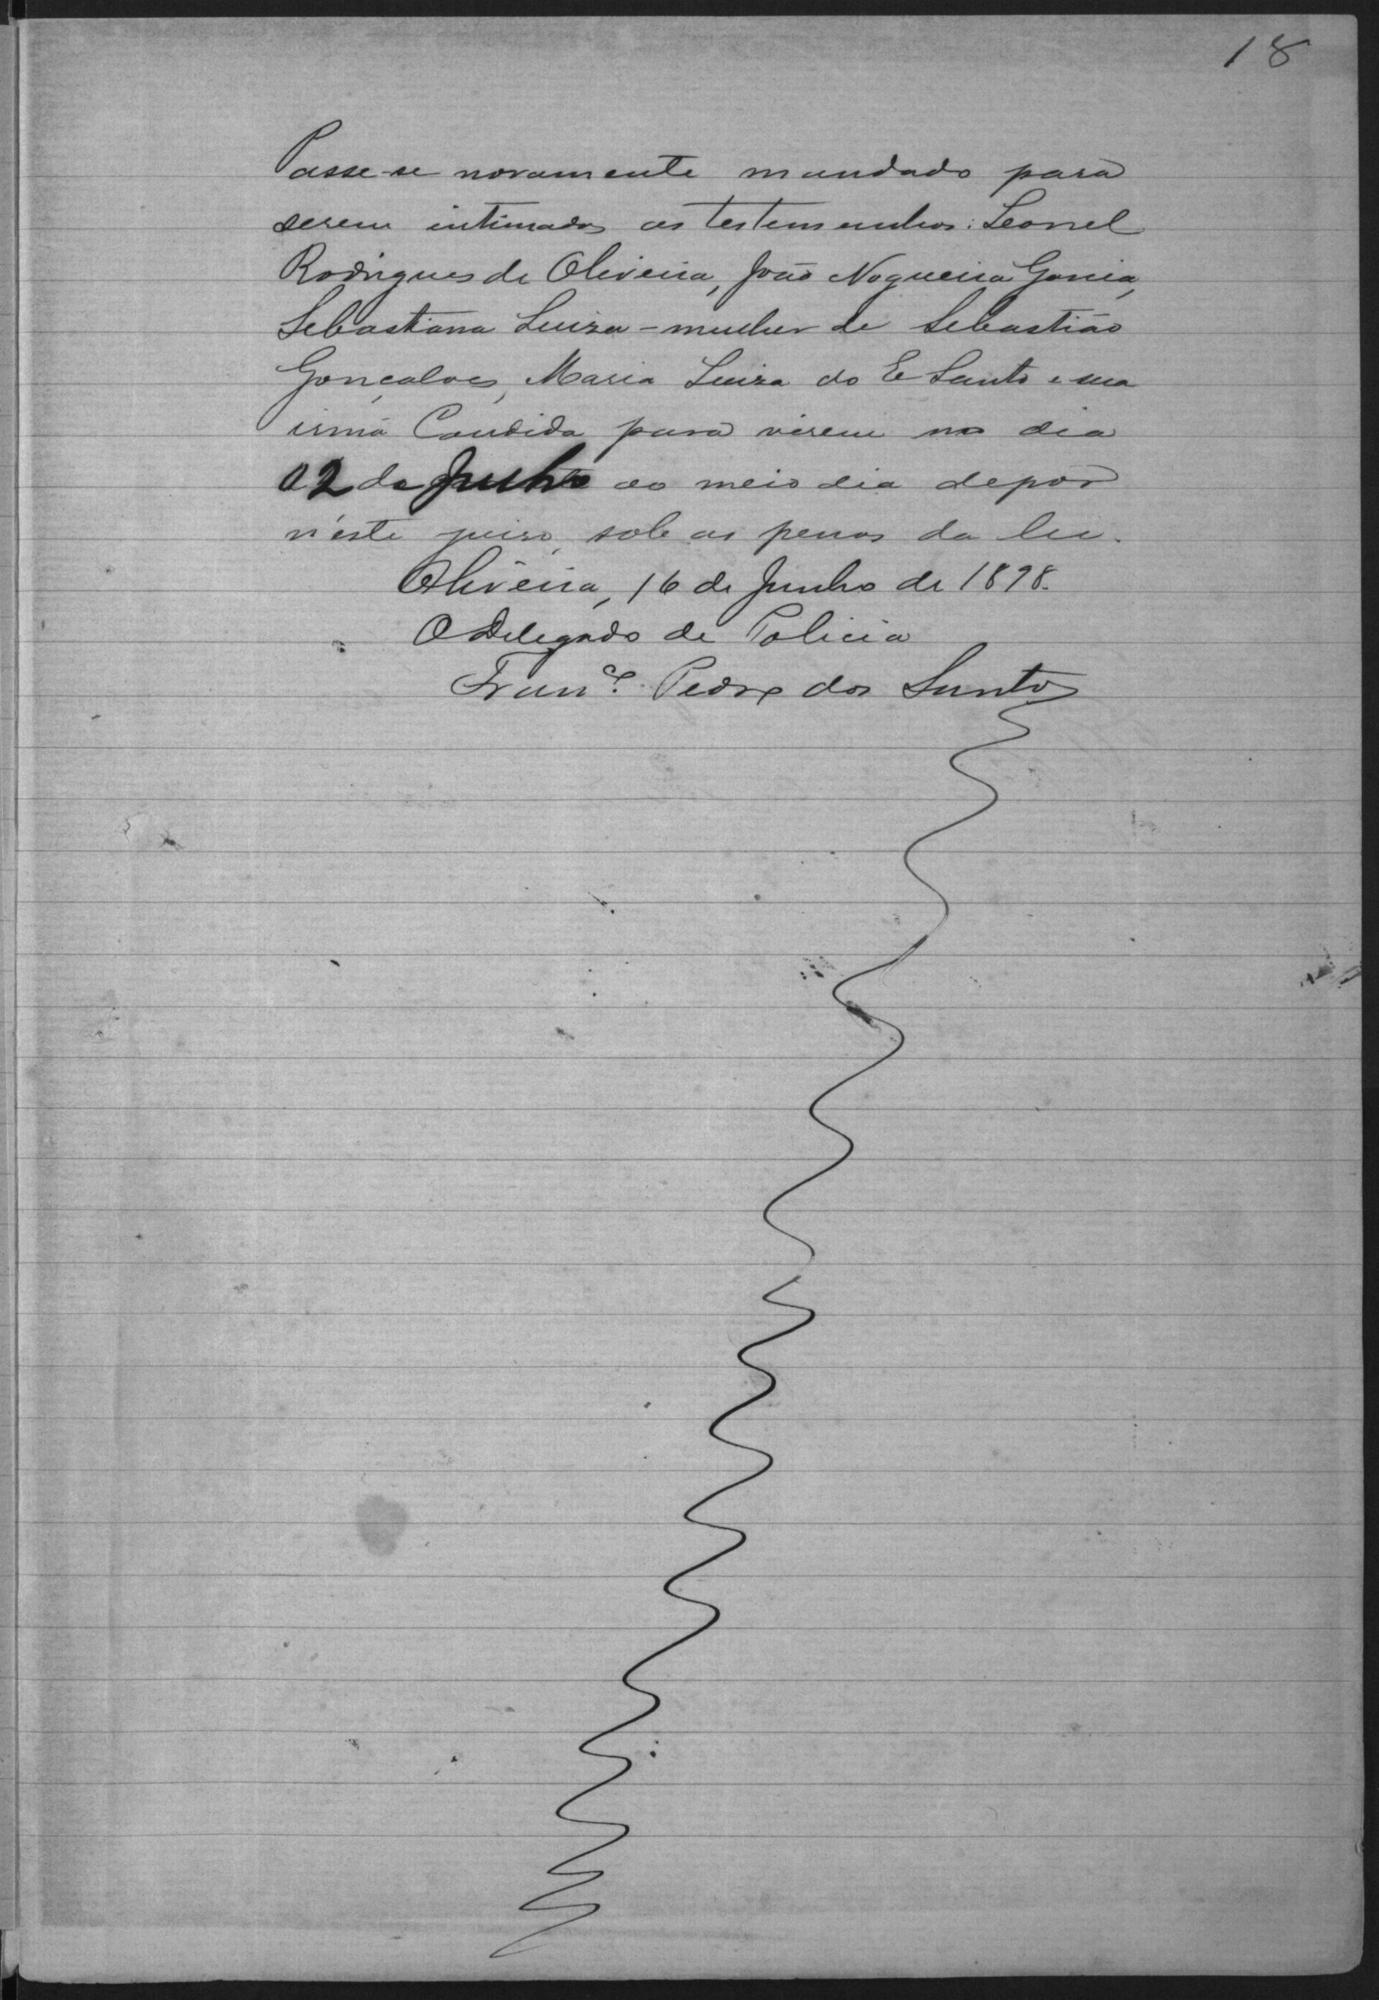 18
Passe-se novamente mandado para
serem intimados as testemunhas: Leonel
Rodrigues de Oliveira, João Nogueira
Sebastiana Luiza - mulher de Sebastião
Gonçalves, Maria Luiza do E Santo e sua
irmã Candida para virem no dia
02 de ao meio dia depor
n'este juiso, sob as penas da lei.
Oliveira, 16 de Junho de 1898.
O Delegado de Policia
Franco. Pedro dos Santos